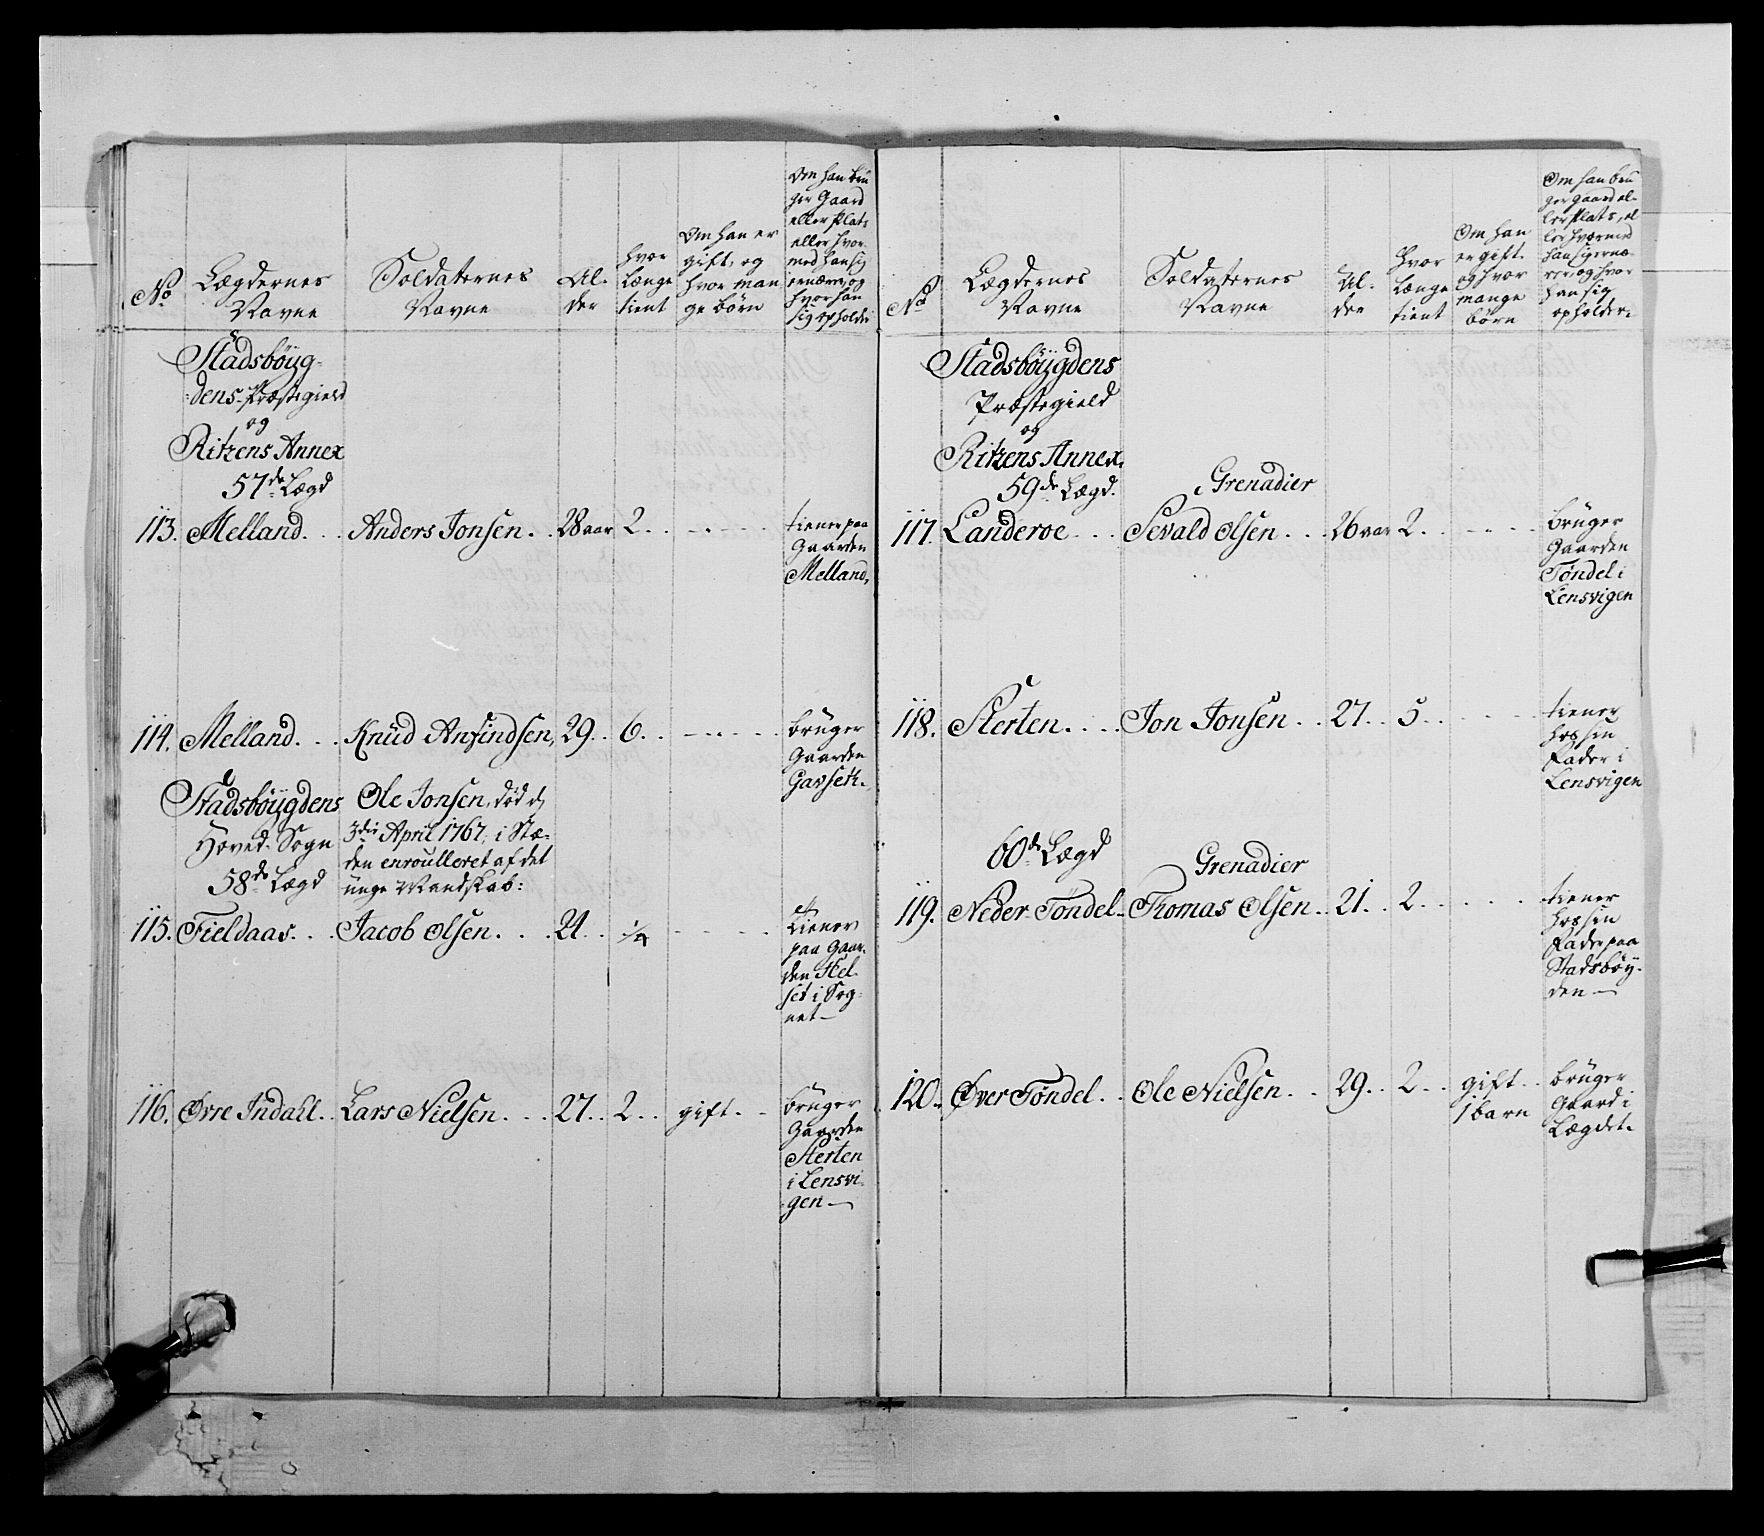 No
Lægdernes
Navne
Soldaternes
Navne
Al-
der
hvor
længe
tient
Om han er
gift, og
hvor man
ge börn
Om han bru
ger Gaard
eller Plats
eller hvor-
med han sig
ernærer, og
hvor han
sig opholder
Stadsböyg-
dens Præstegield
og
Ritzens Annex
57de Lægd
113. Melland. . . Anders Jonsen. . 28 aar 2. . - . - . . .
tiener paa
Gaarden
Melland,
114. Melland. . . Knud Anfindsen, 29. . 6. . - . - . . .
bruger
Gaarden
Gavsett.
Stadsböygdens
Hoved-Sogn
58de Lægd
Ole Jonsen, död d
3die April 1767. i Stæ-
den enroulleret af det
unge Mandskab:
115. Fieldaas. . . Jacob Olsen. . . 21. . ¼
tiener
paa Gaar-
den Stel-
set i Sog-
net -
116. Øvre Indahl. . Lars Nielsen. . . 27. . 2. . gift. .
bruger
Gaarden
Sterten
i Lensvi-
gen -
No
Lægdernes
Navne
Soldaternes
Navne
Al-
der
Hvor
længe
tient
Om han
er gift.
og hvor
mange
börn
Om han bru
ger gaard el-
ler Plats, el
ler hvormed
han sig ernæ-
rer, og hvor
han sig
opholder.
Stadsböygdens
Præstegield
og
Ritzens Annex.
59de Lægd.
Grenadier
117. Landeroe. . . Sevald Olsen. . . 26 aar 2.
bruger
Gaarden
Tøndel i
Lensvigen
118. Sterten. . . . Jon Jonsen. . 27. . 5.
tiener
hos sin
Fader i
Lensvigen
60de Lægd
Grenadier
119. Neder Tøndel. Thomas Olsen. . 21. . 2.
tiener
hos sin
Fader paa
Stadsböy-
den -
120. Øver Tøndel. . Ole Nielsen. . 29. . 2. . gift. .
1 barn
bruger
Gaard i
Lægdet.